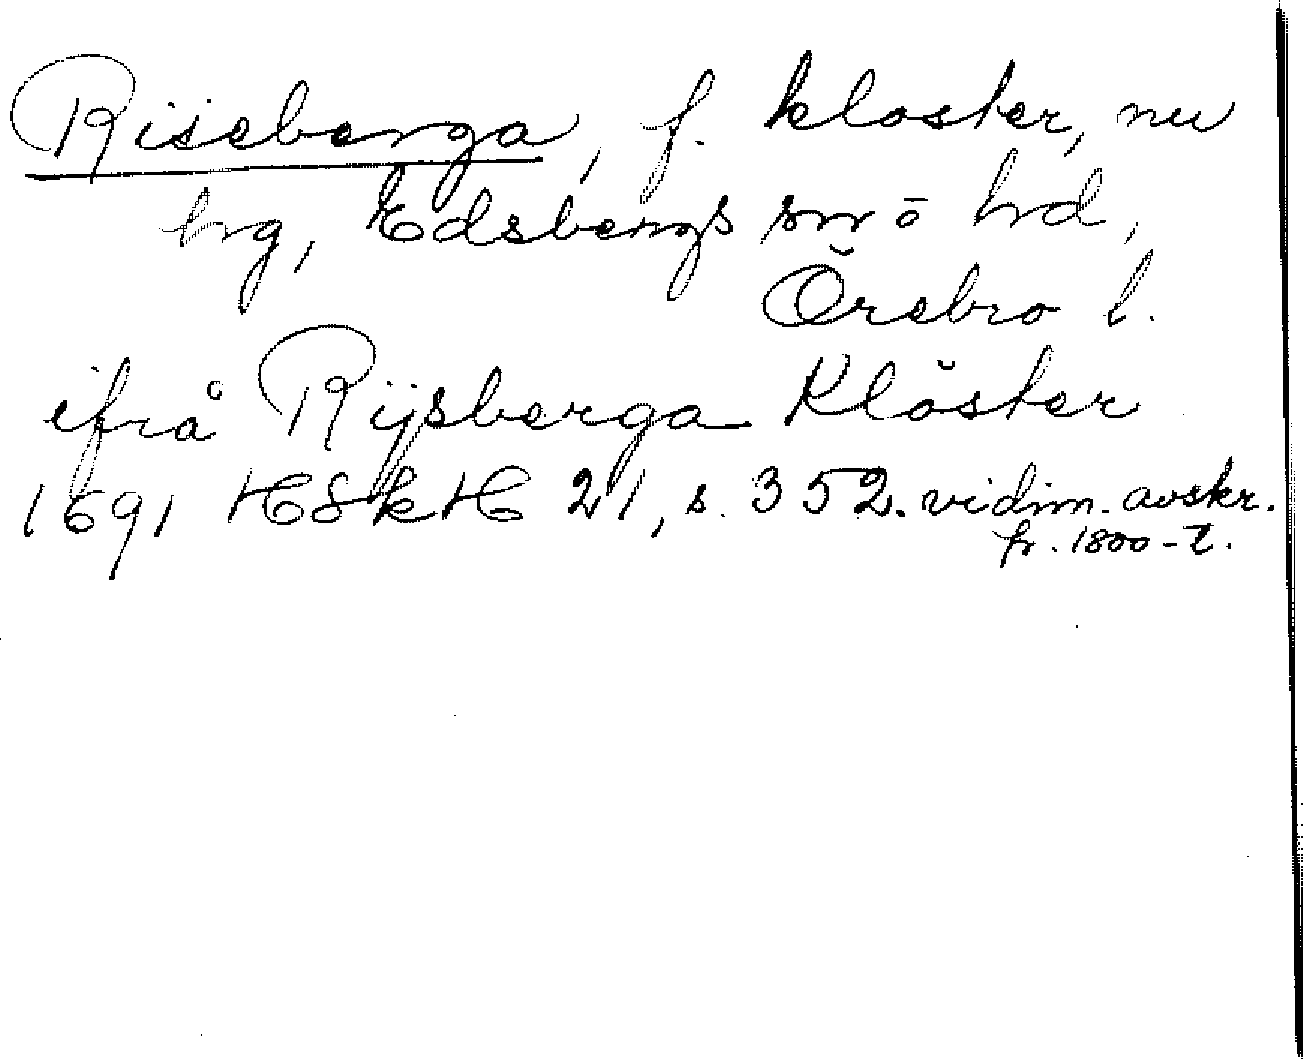 Riseberga, f. kloster, nu
hg, Edsbergs sn o hd,
Örebro l.
ifrå Rijsberga Klöster
1691 HSkH 21, s. 352. vidim. avskr.
fr. 1800-t.